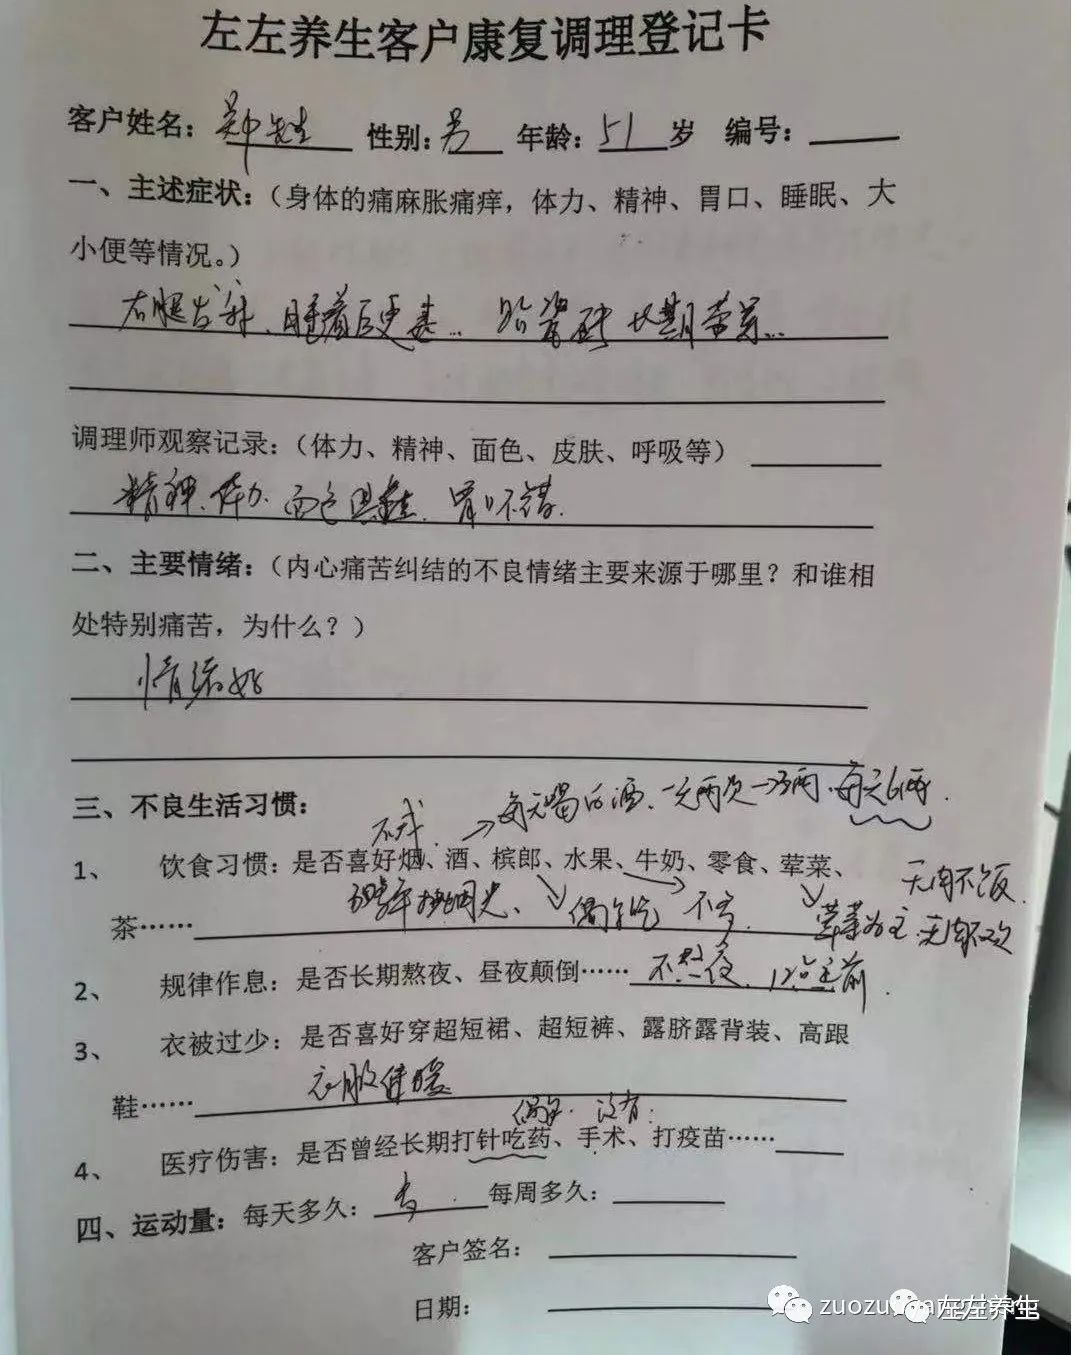 左左养生客户康复调理登记卡
客户姓名：郑先生 性别：男 年龄：51岁 编号：
一、主述症状：（身体的痛麻胀痛痒，体力、精神、胃口、睡眠、大
小便等情况。）
右腿发麻、睡着后更甚… 贴瓷砖 长期劳累…
调理师观察记录：（体力、精神、面色、皮肤、呼吸等）
精神、体力、面色俱佳、胃口不错.
二、主要情绪：（内心痛苦纠结的不良情绪主要来源于哪里？和谁相
处特别痛苦，为什么？）
情绪好
三、不良生活习惯：
每天喝白酒、一天两次一次3两、每天6两.
1、 饮食习惯：是否喜好烟、酒、槟郎、水果、牛奶、零食、荤菜、
无肉不饭.
茶…… 偶尔吃 不多. 荤菜为主、无肉不欢
2、 规律作息：是否长期熬夜、昼夜颠倒…… 不熬夜、12点之前.
3、 衣被过少：是否喜好穿超短裙、超短裤、露脐露背装、高跟
鞋…… 衣服保暖
偶尔. 没有.
4、 医疗伤害：是否曾经长期打针吃药、手术、打疫苗……
四、运动量：每天多久： 每周多久：
客户签名：
日期：
左左养生